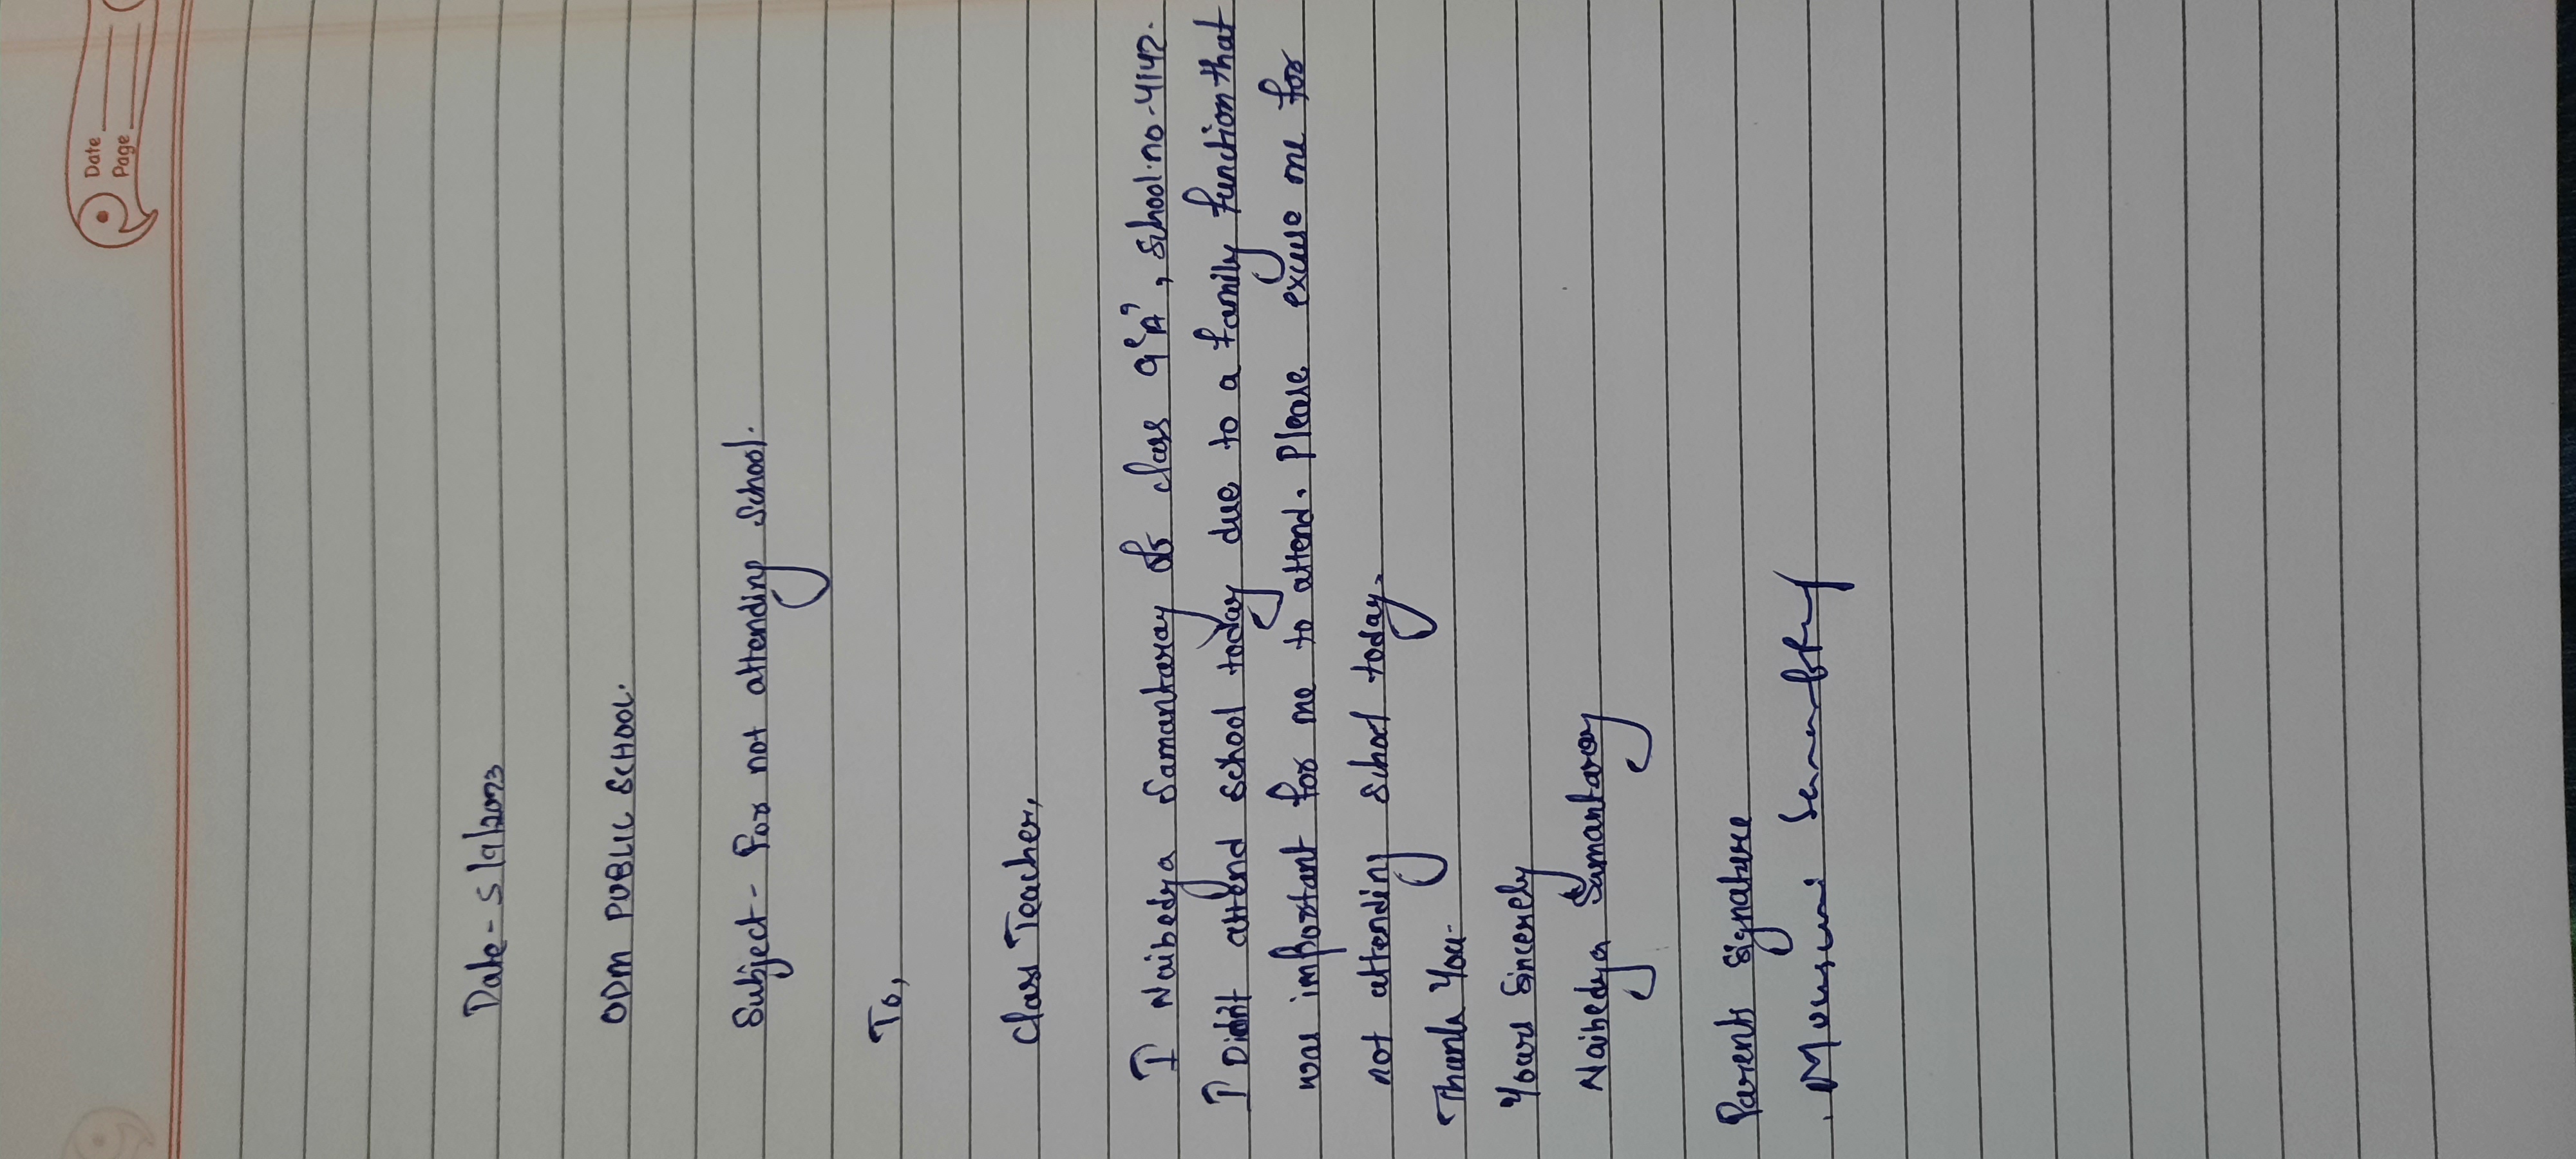 Date
Page
Date - 5/9/2023
ODM PUBLIC SCHOOL.
Subject - For not attending School.
To,
Class Teacher,
I Naibedya Samantaray of class 9 'A', School.no-4142.
I Didn't attend school today due to a family function that
was important for me to attend. Please excuse me for
not attending school today.
Thank You.
Yours Sincerely
Naibedya Samantaray
Parents Signature
Mousumi Samantray